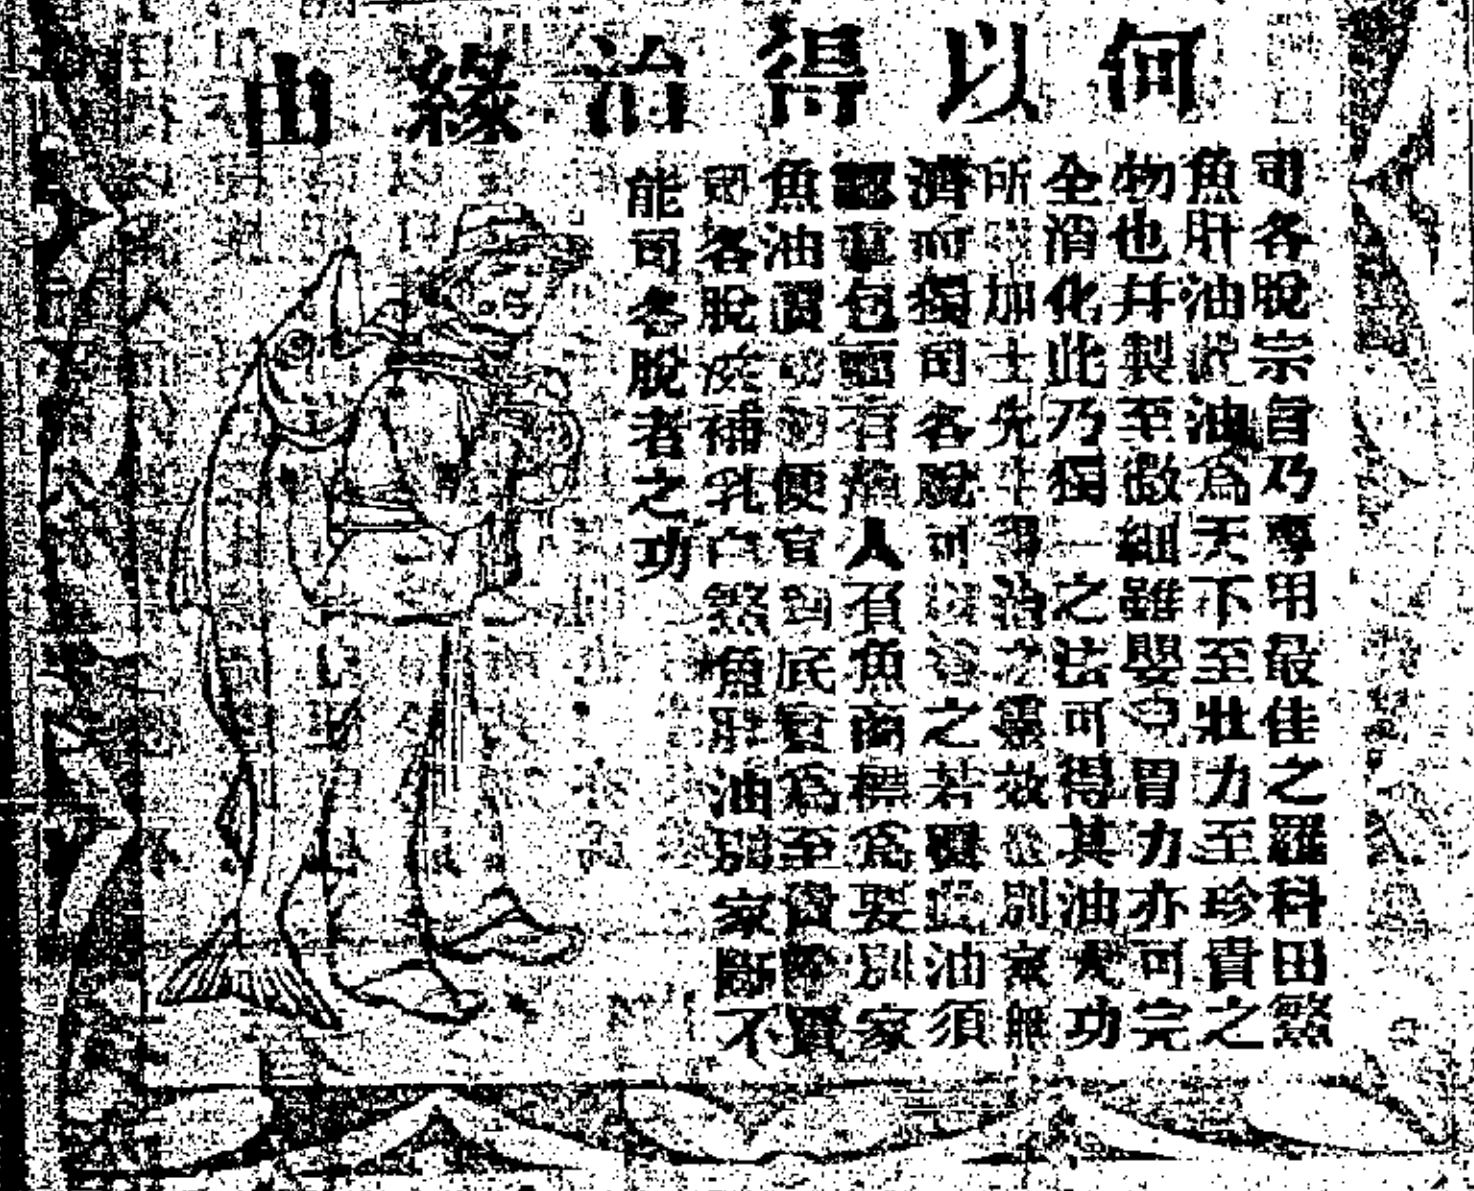 何以得治緣由
司各脫宗旨乃專用最佳之羅科田鰵
魚肝油此油為天下至壯力至珍貴之
物也幷製至微細雖嬰兒胃力亦可完
全消化此乃獨一之法可得其油犬功
所加士先治之靈效別家無
濟而獨司各脫可之若購此油須
認眞包面有漁人負魚商標為要別家
魚油便宜到底實為至賤
司各脫於補乳白鰵魚肝油別家斷不
能司各脫者之功